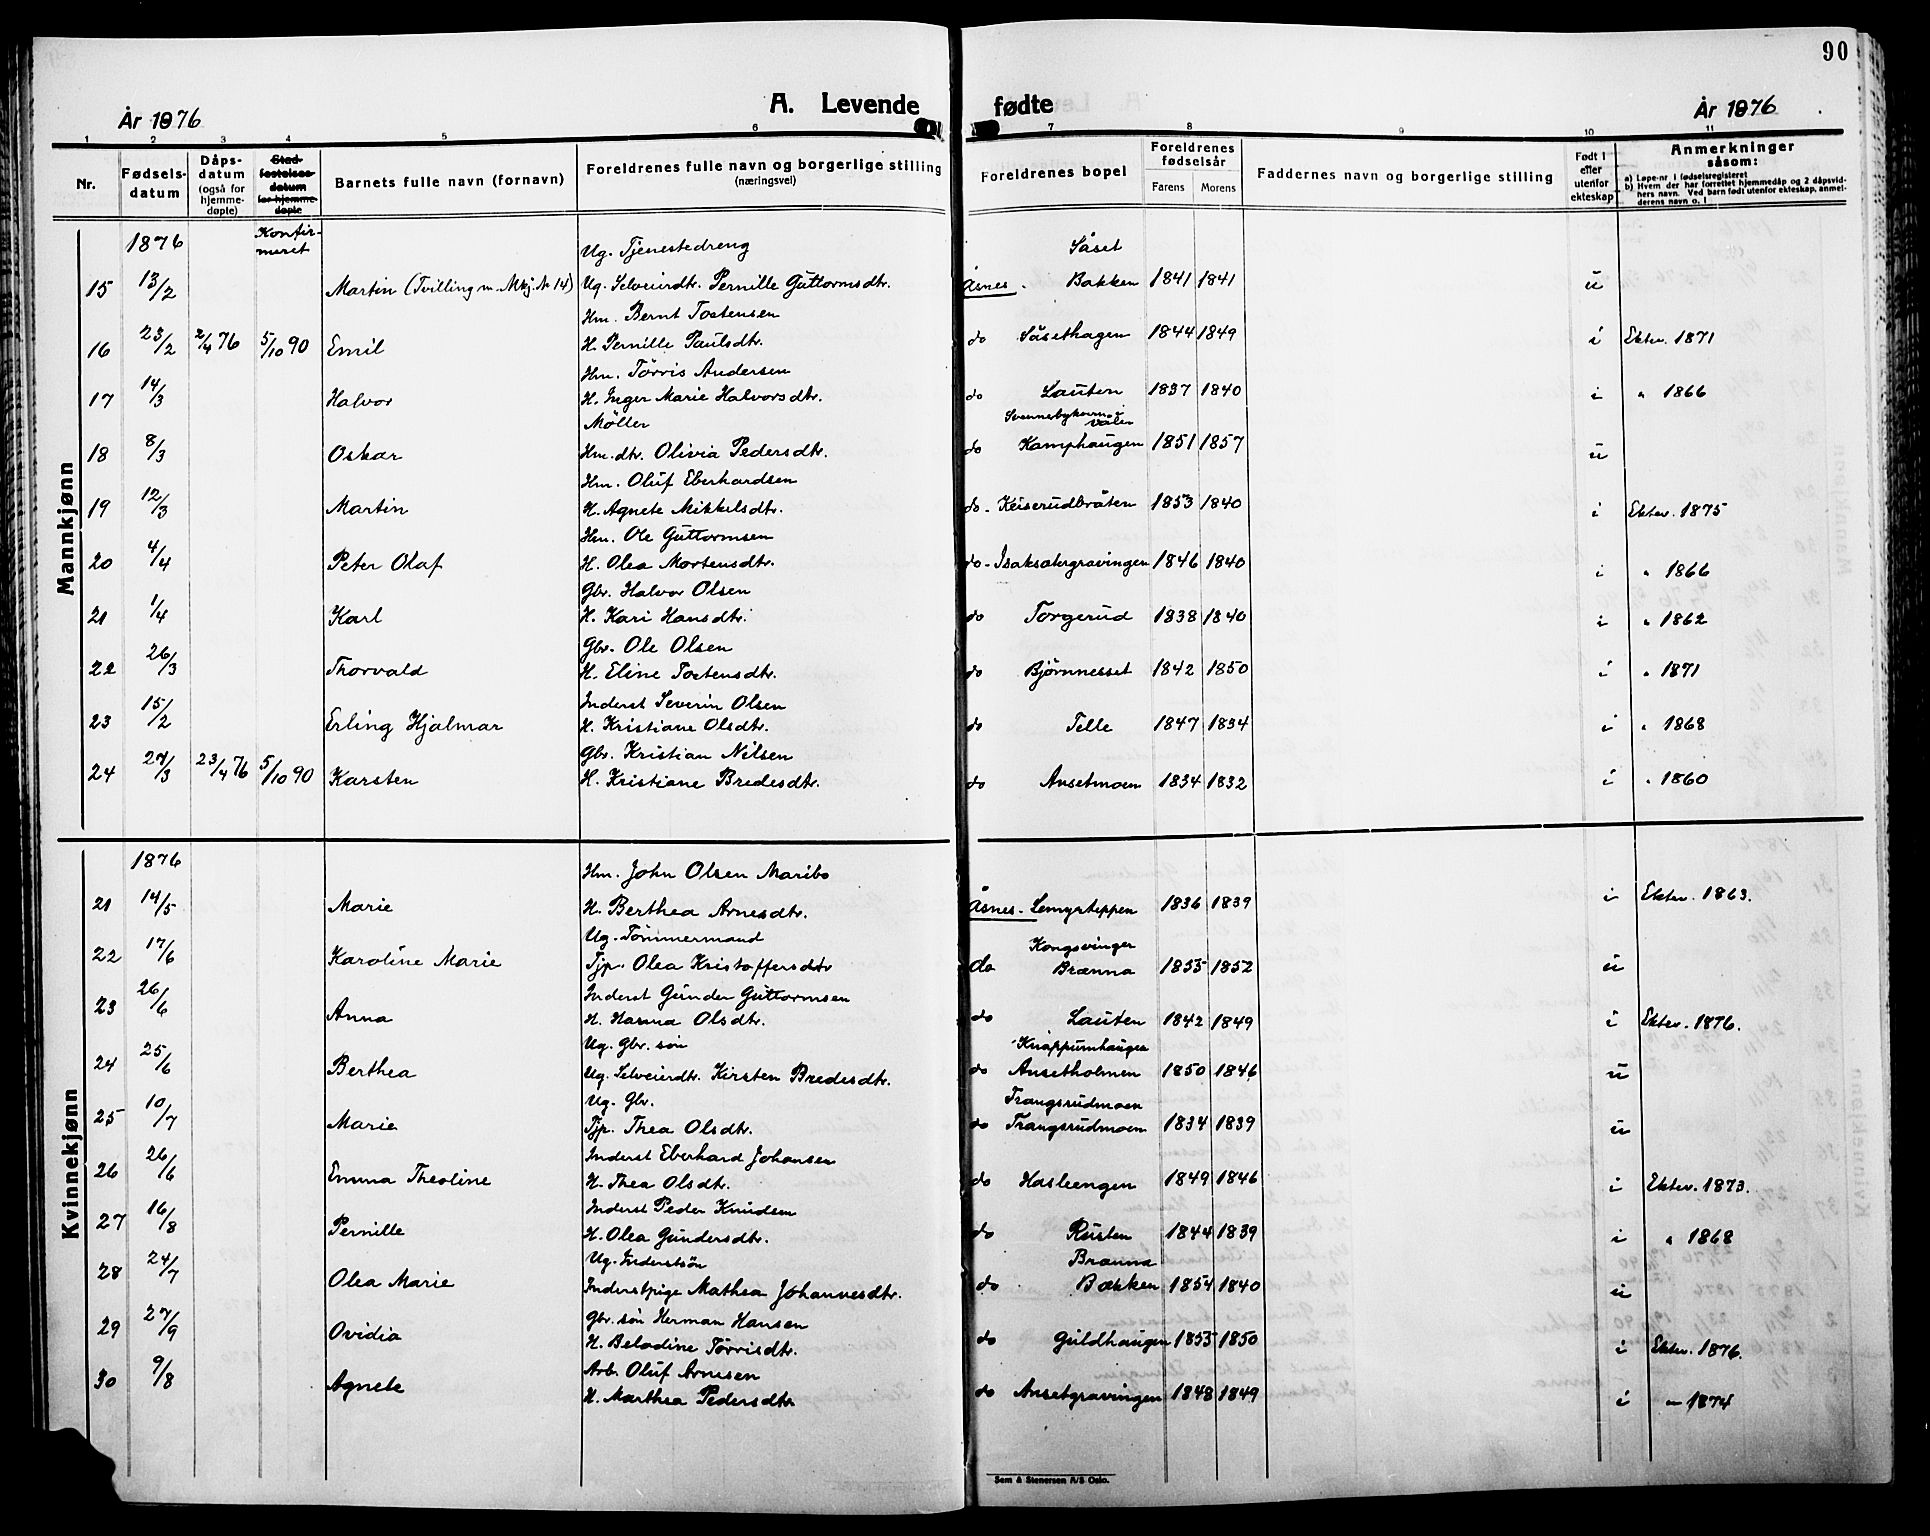 90
A. Levende fødte
År 1876
År 1876
1 2 3 4 5 6 7 8 9 10 11
Nr.
Fødsels-
datum
Dåps-
datum
(også for
hjemme-
døpte)
Stad-
festelses-
datum
for hjemme-
døpte
Barnets fulle navn (fornavn)
Foreldrenes fulle navn og borgerlige stilling
(næringsvei)
Foreldrenes bopel
Foreldrenes
fødselsår
Farens Morens
Faddernes navn og borgerlige stilling
Født i
eller
utenfor
ekteskap
Anmerkninger
såsom:
a) Løpe-nr i fødselsregisteret
b) Hvem der har forrettet hjemmedåp og 2 dåpsvid-
ners navn. Ved barn født utenfor ekteskap, anmel-
derens navn o. l
Mannkjønn
1876 Konfir-
meret
Ug. Tjenestedreng Såset
15 13/2 Martin (Tvilling m. Mkj. № 14) Ug. Selveierdtr. Pernille Guttormsdtr. Åsnes. Bakken 1841 1841 u
Hm. Bernt Tostensen
16 23/2 2/4 76 5/10 90 Emil H. Pernille Paulsdtr. do Såsethagen 1844 1849 i Ektev. 1871
Hm. Tørris Andersen
17 14/3 Halvor H. Inger Marie Halvorsdtr. do Lauten 1837 1840 i " 1866
Møller Svennebykvern i
Våler
18 8/3 Oskar Hm.dtr. Olivia Pedersdtr. do Kamphaugen 1851 1857 u
Hm. Oluf Eberhardsen
19 12/3 Martin H. Agnete Mikkelsdtr. do - Keiserudbråten 1853 1840 i Ektev. 1875
Hm. Ole Guttormsen
20 4/4 Peter Olaf H. Olea Mortensdtr. do - Isaksætergravingen 1846 1840 i " 1866
Gbr. Halvor Olsen
21 1/4 Karl H. Kari Hansdtr. do Torgerud 1838 1840 i " 1862
Gbr. Ole Olsen
22 26/3 Thorvald H. Eline Tostensdtr. do Bjørnnesset 1842 1850 i " 1871
Inderst Severin Olsen
23 15/2 Erling Hjalmar H. Kristiane Olsdtr. do Telle 1847 1834 i " 1868
Gbr. Kristian Nilsen
24 27/3 23/4 76 5/10 90 Karsten H. Kristiane Bredesdtr. do Ansetmoen 1834 1832 i " 1860
Kvinnekjønn
1876
Hm. John Olsen Maribo
21 14/5 Marie H. Berthea Arnesdtr. Åsnes. Lemyrteppen 1836 1839 i Ektev. 1863.
Ug. Tømmermand Kongsvinger
22 17/6 Karoline Marie Tjp. Olea Kristoffersdtr do Brænna 1855 1852 u
Inderst Gunder Guttormsen
23 26/6 Anna H. Hanna Olsdtr. do Lauten 1842 1849 i Ektev. 1876.
Ug. Gbr. søn Knappumhaugen
24 25/6 Berthea Ug. Selveierdtr. Kirsten Bredesdtr. do Ansetholmen 1850 1846 u
Ug. Gbr. Trangsrudmoen
25 10/7 Marie Tjp. Thea Olsdtr. do Trangsrudmoen 1834 1839 u
Inderst Eberhard Johansen
26 26/6 Emma Theoline H. Thea Olsdtr. do Hasleengen 1849 1846 i Ektev. 1873.
Inderst Peder Knudsen
27 16/8 Pernille H. Olea Gundersdtr. do Rusten 1844 1839 i " 1868
Ug. Inderstsøn Brænna
28 24/7 Olea Marie Inderstpige Mathea Johannesdtr. do Bækken 1854 1840 u
Gbr. søn Herman Hansen
29 27/9 Ovidia H. Beladine Tørrisdtr. do Guldhaugen 1855 1850 i Ektev. 1876.
Arb. Oluf Arnesen
30 9/8 Agnete H. Marthea Pedersdtr do Ansetgravingen 1848 1849 i " 1874
Sem & Stenersen A/S Oslo.